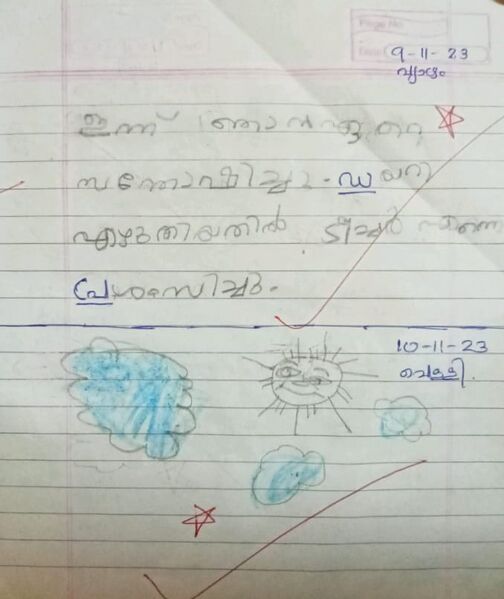 Page No.
Date 9-11-23
വ്യാഴം
ഇന്ന് ഞാൻ ഏറെ
സന്തോഷിച്ചു. ഡയറി
എഴുതിയതിൽ ടീച്ചർ എന്നെ
പ്രേശംസിച്ചു.
10-11-23
വെള്ളി.